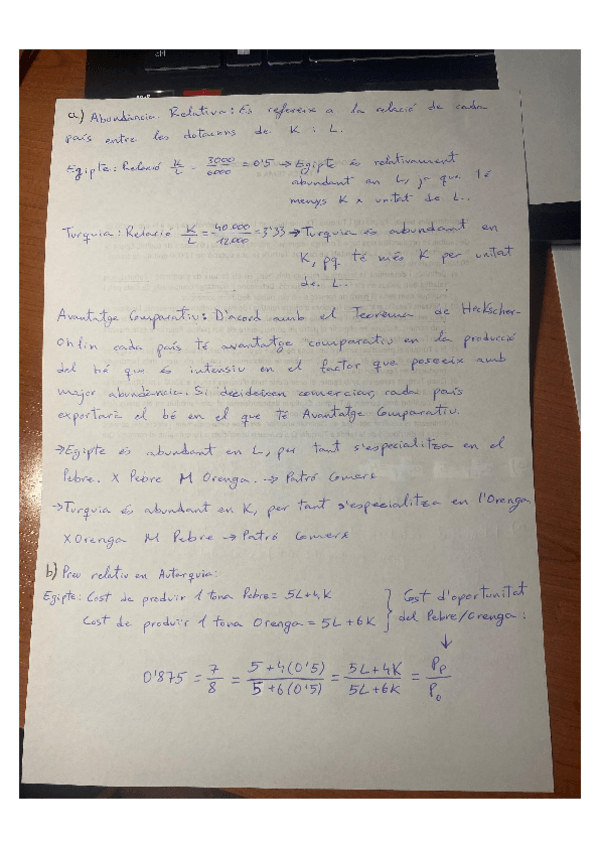 a) Abundància Relativa: Es refereix a la relació de cada
país entre les dotacions de K i L.
Egipte: Relació K/L = 3000/6000 = 0'5 → Egipte és relativament
abundant en L, ja que té
menys K x unitat de L.
Turquia: Relació K/L = 40.000/12.000 = 3'33 → Turquia és abundant en
K, pq té més K per unitat
de L.
Avantatge Comparatiu: D'acord amb el Teorema de Heckscher-
Ohlin cada país té avantatge comparatiu en la producció
del bé que és intensiu en el factor que posseeix amb
major abundància. Si decideixen comerciar, cada país
exportarà el bé en el que té Avantatge Comparatiu.
→ Egipte és abundant en L, per tant s'especialitza en el
Pebre. X Pebre M Orenga. → Patró Comerç
→ Turquia és abundant en K, per tant s'especialitza en l'Orenga
X Orenga M Pebre → Patró Comerç
b) Preu relatiu en Autarquia:
Egipte: Cost de produir 1 tona Pebre = 5L+4K
Cost de produir 1 tona Orenga = 5L+6K } Cost d'oportunitat
del Pebre/Orenga:
↓
0'875 = 7/8 = 5+4(0'5)/5+6(0'5) = 5L+4K/5L+6K = Pp/Po